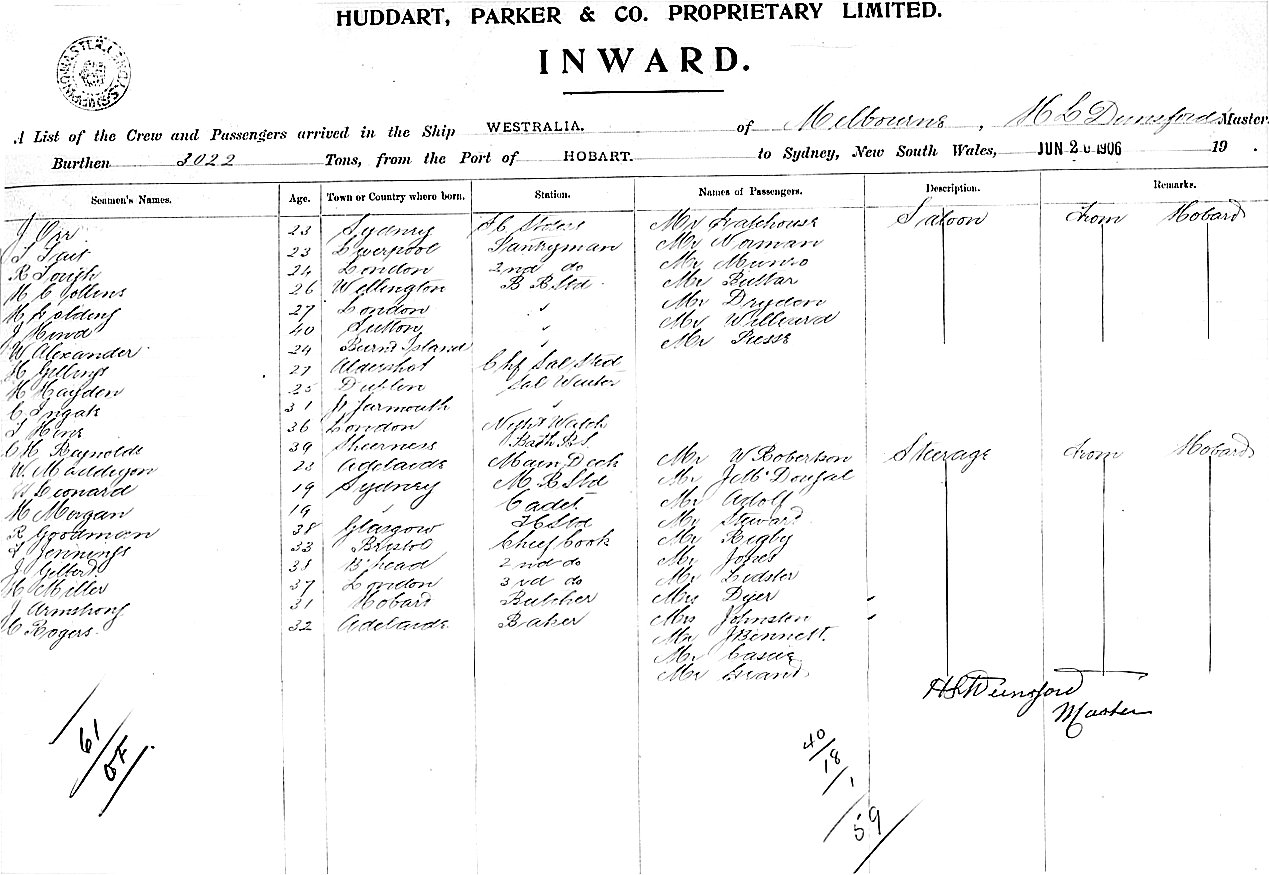 HUDDART, PARKER & CO. PROPRIETARY LIMITED.
INWARD.
A List of the Crew and Passengers arrived in the Ship WESTRALIA. of Melbourne, H L Dunsford Master
Burthen 3022 Tons, from the Port of HOBART. to Sydney, New South Wales, JUN 2 1906 19 .
Seamen's Names. Age. Town or Country where born. Station. Names of Passengers. Description. Remarks.
J Orr 23 Sydney Mr Saloon from Hobart
T Tait 23 Liverpool Pantryman Mr Norman
R Tough 24 London 2nd do Mr Munro
H C Collens 26 Wellington B R Std Mr Buttar
H Golding 27 London " Mr Dryden
J Hind 40 Sutton " Mr
W Alexander 24 Burnt Island " Mr
H 27 Aldershot Chf Sal Std
H Hayden 25 Dublin Sal Waiter
C Ingate 31 Yarmouth "
T Hine 36 London Night Watch
C H Reynolds 39 Sheerness Bath R S Mr W Robertson Steerage from Hobart
W 23 Adelaide Main Deck Mr J McDougal
W Leonard 19 Sydney M R Std Mr Adolf
H Morgan 19 " Cadet Mr Steward
R Goodman 38 Glasgow F C Std Mr Rigby
T Jennings 33 Bristol Chief Cook Mr Jones
J Gilbert 38 B'head 2nd do Mr Lidster
H Miller 37 London 3rd do Mrs Dyer
J Armstrong 31 Hobart Butcher Mrs Johnston
C Rogers 32 Adelaide Baker Mr J Bennett
Mr
Mr Grant
H L Dunsford
Master
61
40
18
1
59